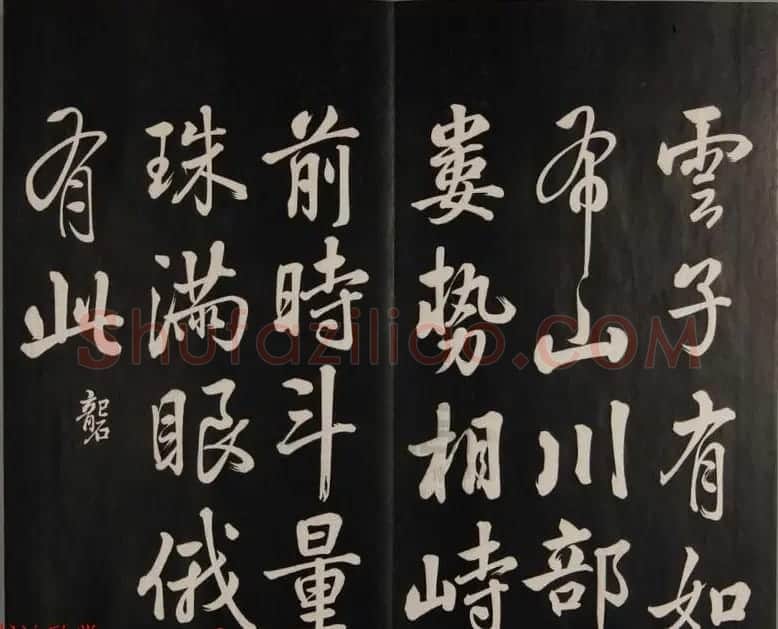 雲子有如
布山川部
婁勢相峙
前時斗量
珠滿眼俄
有此
礱
Shufaziliao.COM